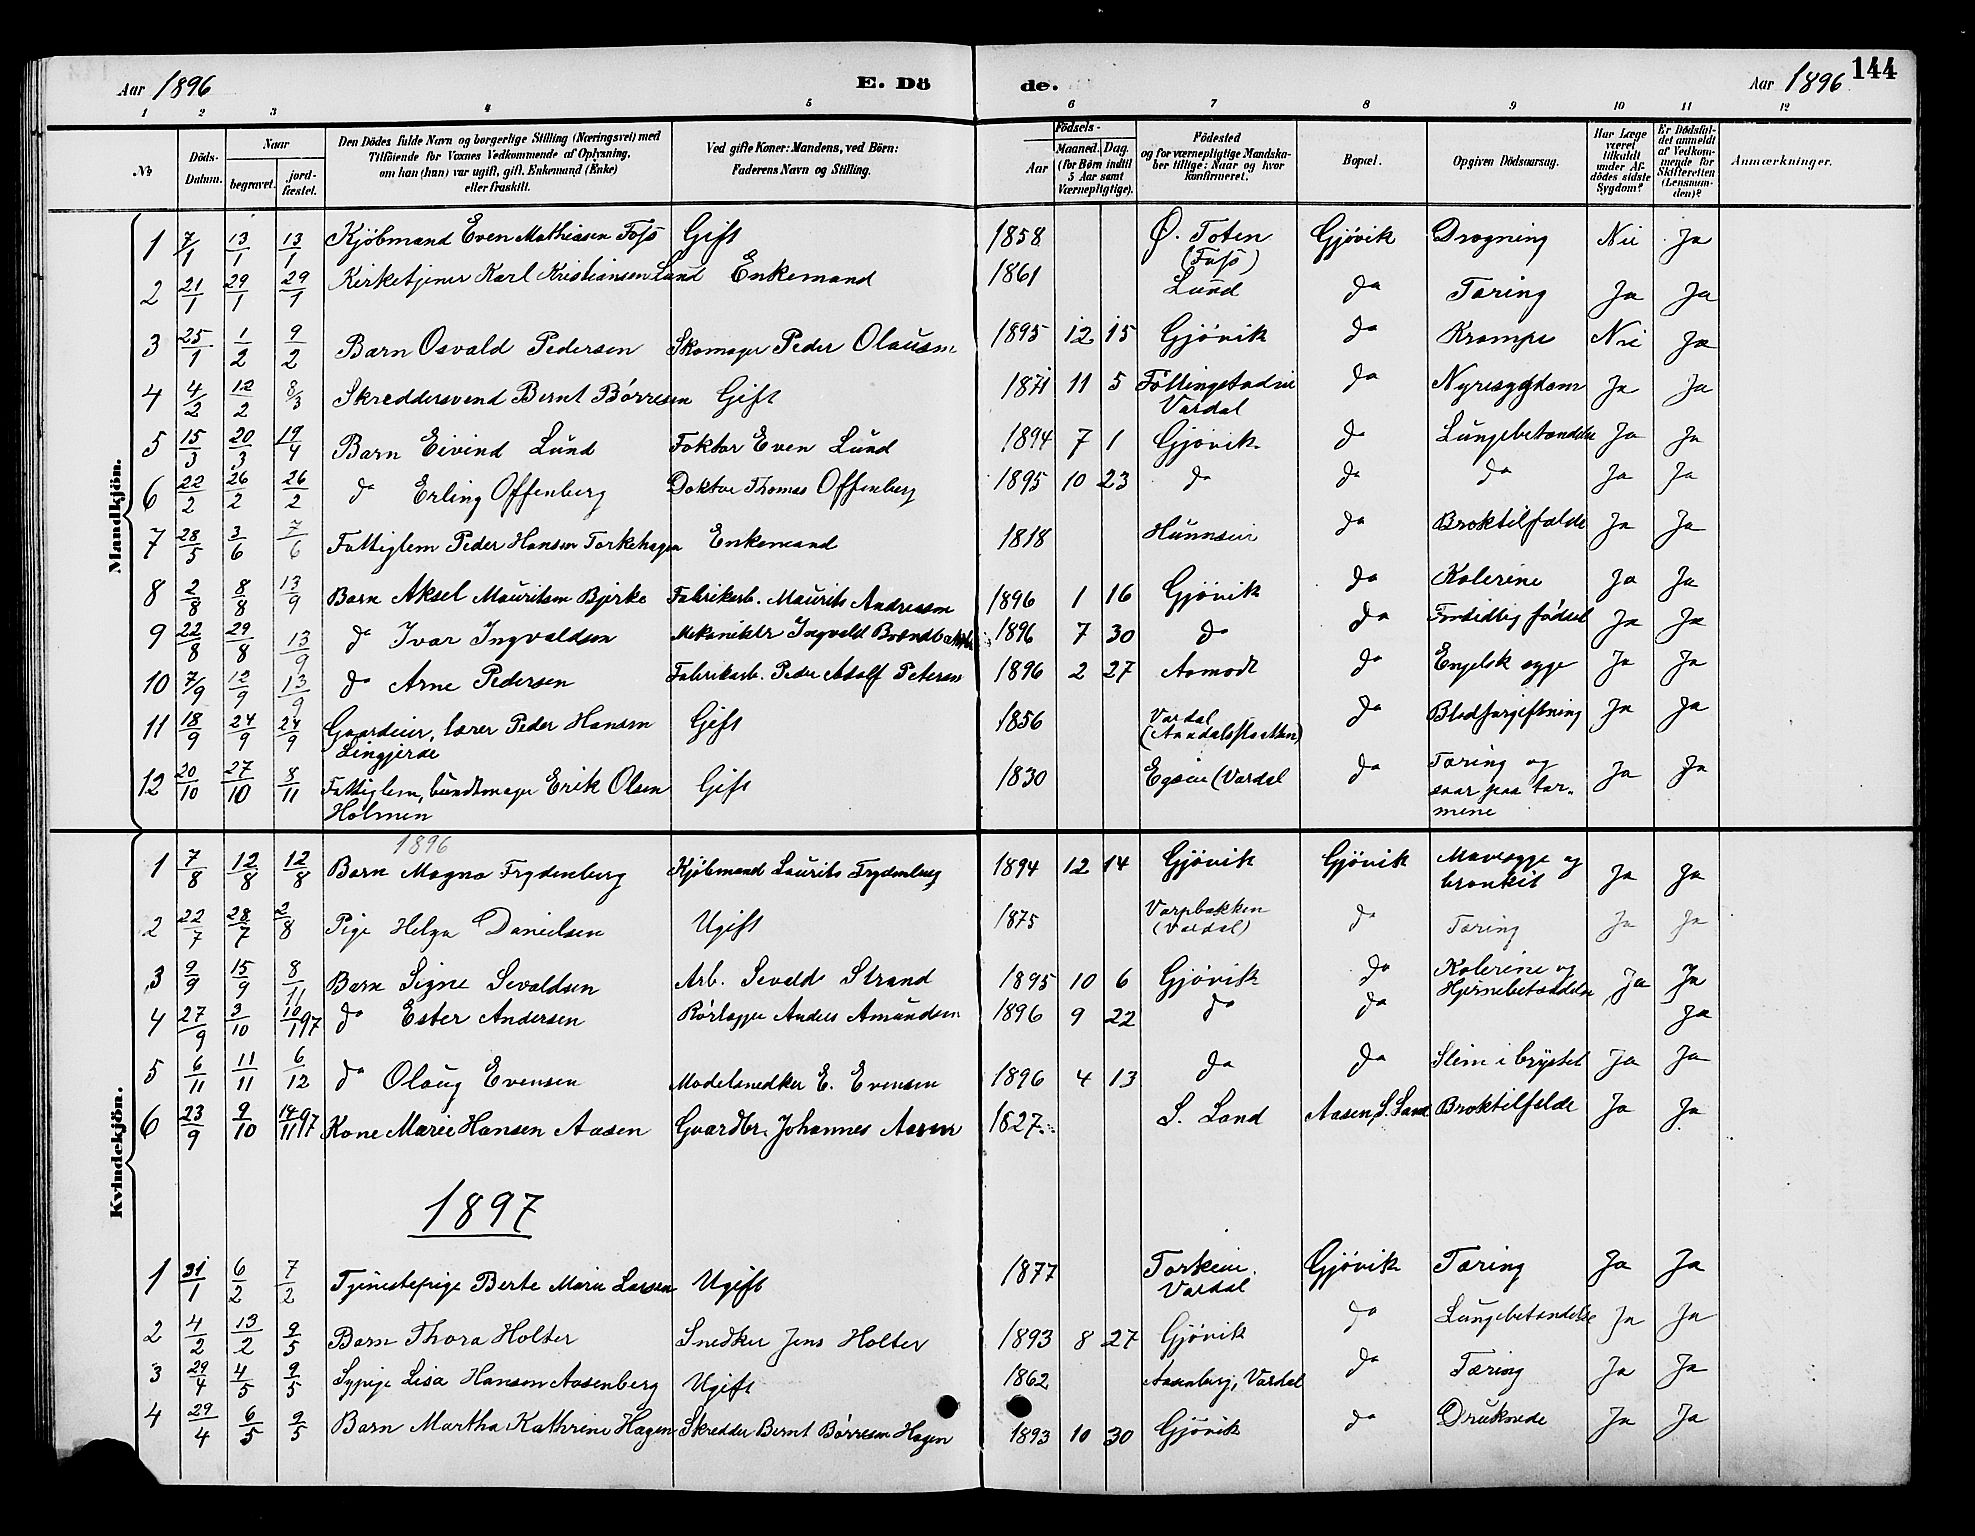 144
Aar 1896 E. Dö de. Aar 1896
1 2 3 4 5 6 7 8 9 10 11 12
No. Döds-Datum. Naar begravet. jordfæstet. Den Dödes fulde Navn og borgerlige Stilling (Næringsvei) med Tilföiende for Voxnes Vedkommende af Oplysning, om han (hun) var ugift, gift, Enkemand (Enke) eller fraskilt. Ved gifte Koner: Mandens, ved Börn: Faderens Navn og Stilling. Födsels- Aar Maaned. Dag. (for Börn indtil 5 Aar samt Værnepligtige). Födested og for værnepligtige Mandskaber tillige: Naar og hvor konfirmeret. Bopæl. Opgiven Dödsaarsag. Har Læge været tilkaldt under Afdödes sidste Sygdom? Er Dödsfaldet anmeldt af Vedkommende for Skifteretten (Lensmanden)? Anmærkninger.
Mandkjön.
1 7/1 13/1 13/1 Kjøbmand Even Mathiasen Foss Gift 1858 Ø. Toten (Foss) Gjøvik Drogning Nei Ja
2 21/1 29/1 29/1 Kirketjener Karl Kristiansen Lund Enkemand 1861 Lund do Tæring Ja Ja
3 25/1 1/2 9/2 Barn Osvald Pedersen Skomager Peder Olausen 1895 12 15 Gjøvik do Krampe Nei Ja
4 4/2 12/2 8/3 Skreddersvend Bernt Børresen Gift 1871 11 5 Vardal do Nyresygdom Ja Ja
5 15/3 20/3 19/4 Barn Eivind Lund Faktor Even Lund 1894 7 1 Gjøvik do Lungebetændelse Ja Ja
6 22/2 26/2 26/2 do Erling Offenberg Doktor Thomas Offenberg 1895 10 23 do do do Ja Ja
7 28/5 3/6 7/6 Fattiglem Peder Hansen Torkehagen Enkemand 1818 Hunnseie do Broktilfælde Ja Ja
8 2/8 8/8 13/9 Barn Aksel Mauritsen Bjerke Fabrikarb. Maurits Andreasen 1896 1 16 Gjøvik do Kolerine Ja Ja
9 22/8 29/8 13/9 do Ivar Ingvaldsen Mekaniker Ingvald 1896 7 30 do do Forsidlig fødsel Ja Ja
10 7/9 12/9 13/9 do Arne Pedersen Fabrikarb. Peder Adolf Petersen 1896 2 27 Aamodt do Engelsk syge Ja Ja
11 18/9 24/9 24/9 Gaardeier, lærer Peder Hansen Lingjerde Gift 1856 Vardal do Blodforgiftning Ja Ja
12 20/10 27/10 8/11 Fattiglem, bundtmager Erik Olsen Holmen Gift 1830 Egseie (Vardal do Tæring og saar paa tarmene Ja Ja
Kvindekjön.
1896
1 7/8 12/8 12/8 Barn Magna Frydenberg Kjøbmand Laurits Frydenberg 1894 12 14 Gjøvik Gjøvik Mavesyge og bronkit Ja Ja
2 22/7 28/7 2/8 Pige Helga Danielsen Ugift 1875 Varpbakken (Vardal) do Tæring Ja Ja
3 9/9 15/9 8/11 Barn Signe Sevaldsen Arb. Sevald Strand 1895 10 6 Gjøvik do Kolerine og Hjernebetændelse Ja Ja
4 27/9 3/10 10/1 97 do Ester Andersen Rørlægger Anders Amundsen 1896 9 22 do do Ja
5 6/11 11/11 6/12 do Olaug Evensen Modelsnedker E. Evensen 1896 4 13 do do Slim i brystet Ja Ja
6 23/9 9/10 14/11 97 Kone Marie Hansen Aasen Gaardbr. Johannes Aasen 1827 S. Land Aasen, S. Land Broktilfælde Ja Ja
1897
1 31/1 6/2 7/2 Tjenestepige Berte Marie Larsen Ugift 1877 Torkeie. Vardal Gjøvik Tæring Ja Ja
2 4/2 13/2 9/5 Barn Thora Holter Snedker Jens Holter 1893 8 27 Gjøvik do Lungebetændelse Ja Ja
3 29/4 4/5 9/5 Sypige Lisa Hansen Aasenberg Ugift 1862 Aasenberg, Vardal do Tæring Ja Ja
4 29/4 6/5 9/5 Barn Martha Kathrine Hagen Skredder Bernt Børresen Hagen 1893 10 30 Gjøvik do Druknede Ja Ja